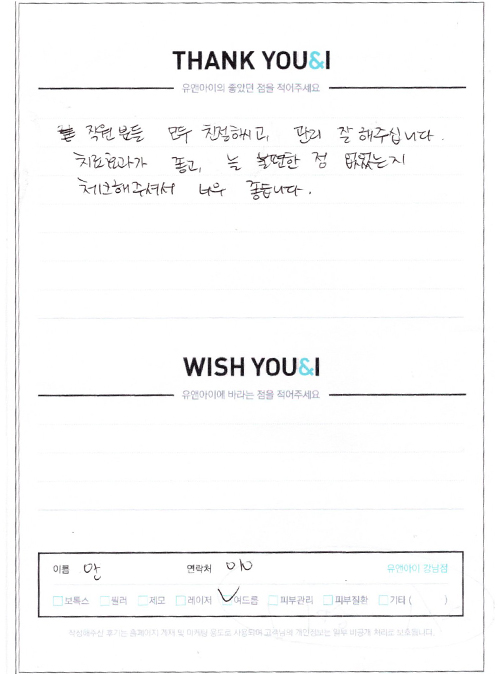 THANK YOU&I
유앤아이의 좋았던 점을 적어주세요
직원분들 모두 친절하시고, 관리 잘 해주십니다.
치료효과가 좋고, 늘 불편한 점 없었는지
체크해주셔서 너무 좋습니다.
WISH YOU&I
유앤아이에 바라는 점을 적어주세요
이름 안 연락처 유앤아이 강남점
보톡스 필러 제모 레이저 여드름 피부관리 피부질환 기타 ( )
작성해주신 후기는 홈페이지 게재 및 마케팅 용도로 사용되며 고객님의 개인정보는 일부 비공개 처리로 보호됩니다.